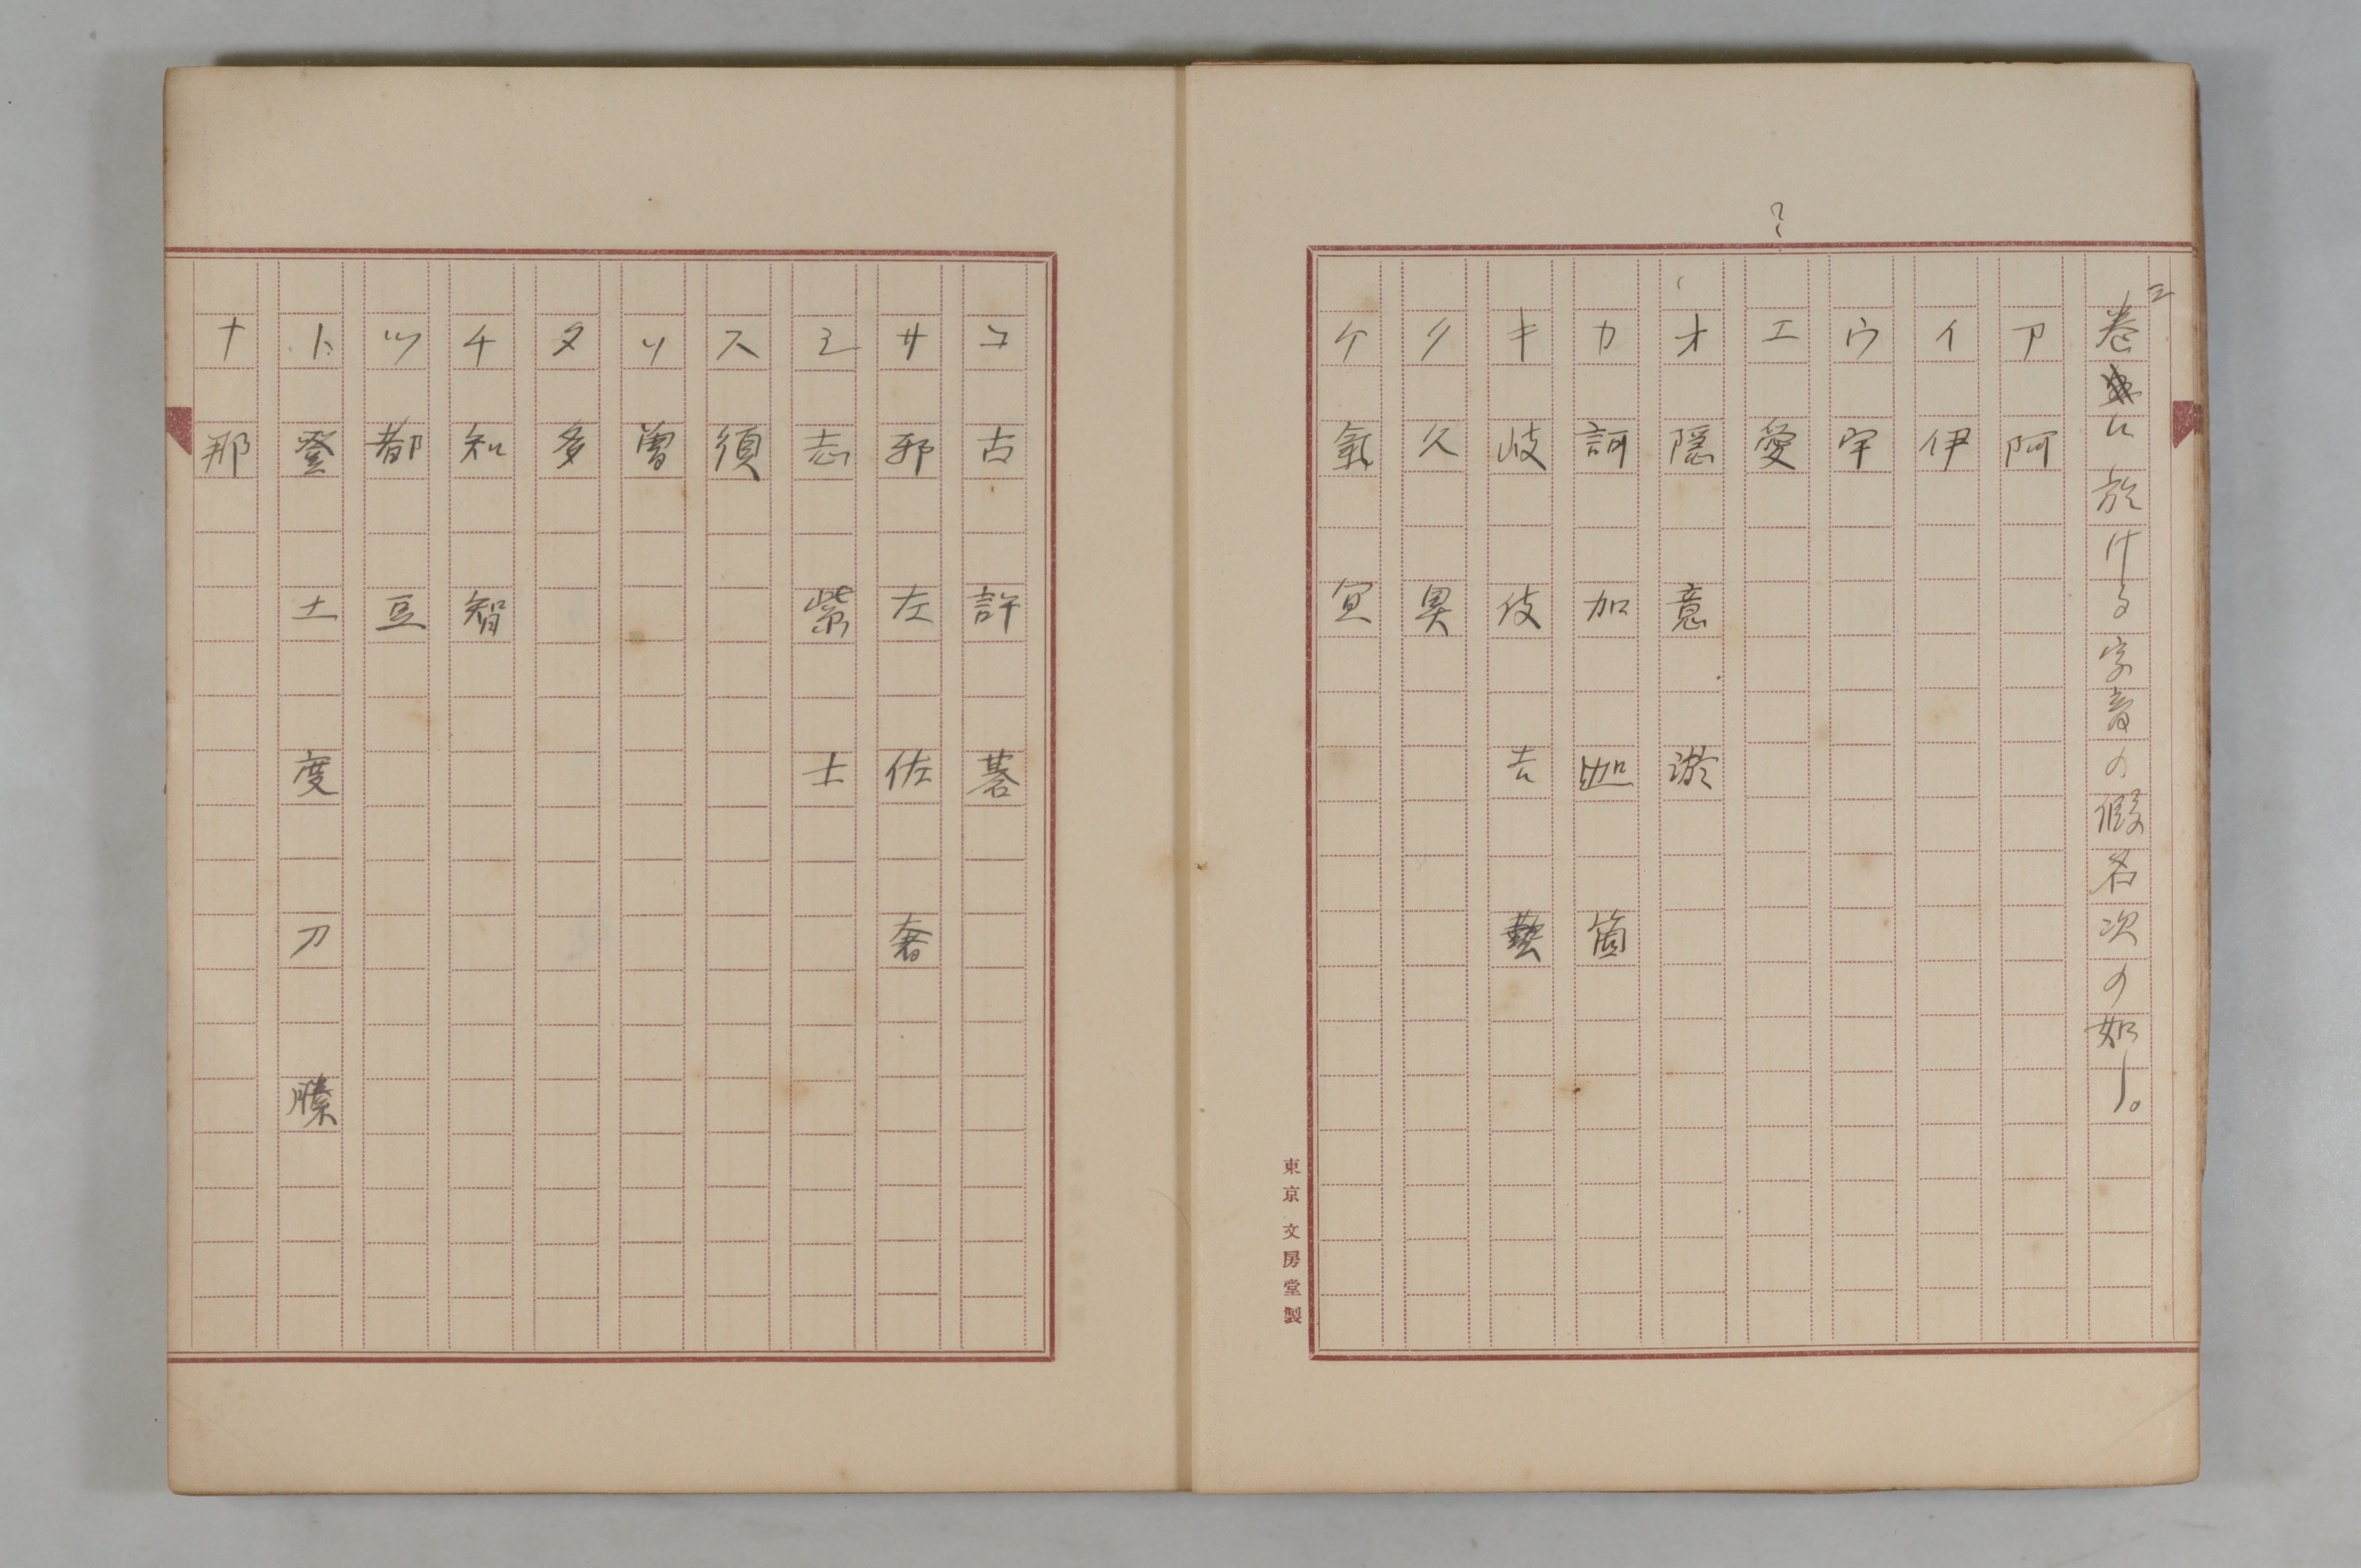 卷二に於ける字音の假名次の如し。
ア 阿
イ 伊
ウ 宇
エ 愛
オ 隠 意 淤
カ 訶 加 迦 箇
キ 岐 伎 吉 藝
ク 久 具
ケ 氣 宜
東京 文房堂製
コ 古 許 碁
サ 邪 左 佐 奢
シ 志 紫 士
ス 須
ソ 曽
タ 多
チ 知 智
ツ 都 豆
ト 登 土 度 刀 縢
ナ 那